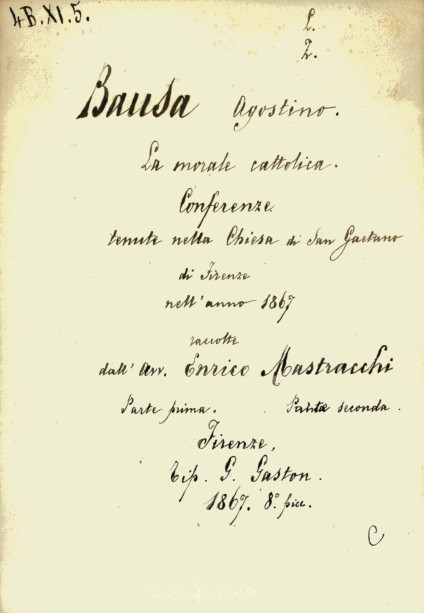 4B.XI.5.
2.
2.
Bausa Agostino.
La morale cattolica.
Conferenze
tenute nella Chiesa di San Gaetano
di Firenze
nell'anno 1867
raccolte
dall' Avv. Enrico Mastracchi
Parte prima. Parte seconda.
Firenze,
Tip. G. Gaston.
1867. 8.° picc.
C